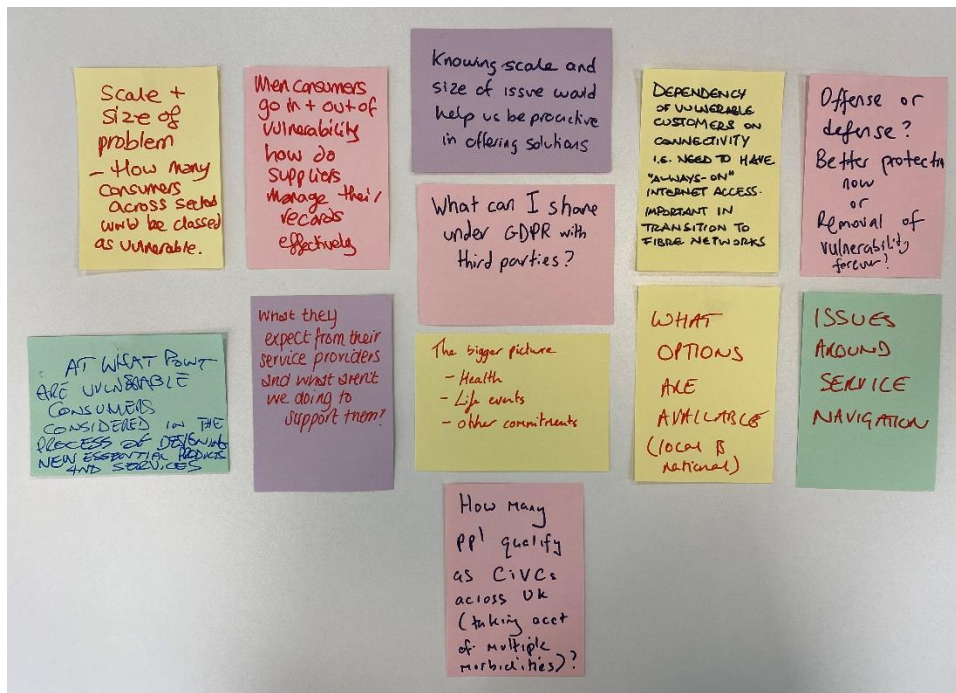 Scale +
size of
problem
- How many
consumers
across sectors
would be classed
as vulnerable.
When consumers
go in + out of
vulnerability
how do
suppliers
manage their
records
effectively
Knowing scale and
size of issue would
help us be proactive
in offering solutions
What can I share
under GDPR with
third parties?
DEPENDENCY
OF VULNERABLE
CUSTOMERS ON
CONNECTIVITY
I.E. NEED TO HAVE
"ALWAYS-ON"
INTERNET ACCESS.
IMPORTANT IN
TRANSITION TO
FIBRE NETWORKS
Offense or
defense?
Better protection
now
or
Removal of
vulnerability
forever?
AT WHAT POINT
ARE VULNERABLE
CONSUMERS
CONSIDERED IN THE
PROCESS OF DESIGNING
NEW ESSENTIAL PRODUCTS
AND SERVICES
What they
expect from their
service providers
and what aren't
we doing to
support them?
The bigger picture
- Health
- Life events
- other commitments
WHAT
OPTIONS
ARE
AVAILABLE
(local &
national)
ISSUES
AROUND
SERVICE
NAVIGATION
How many
ppl qualify
as CiVCs
across UK
(taking acct
of multiple
morbidities)?